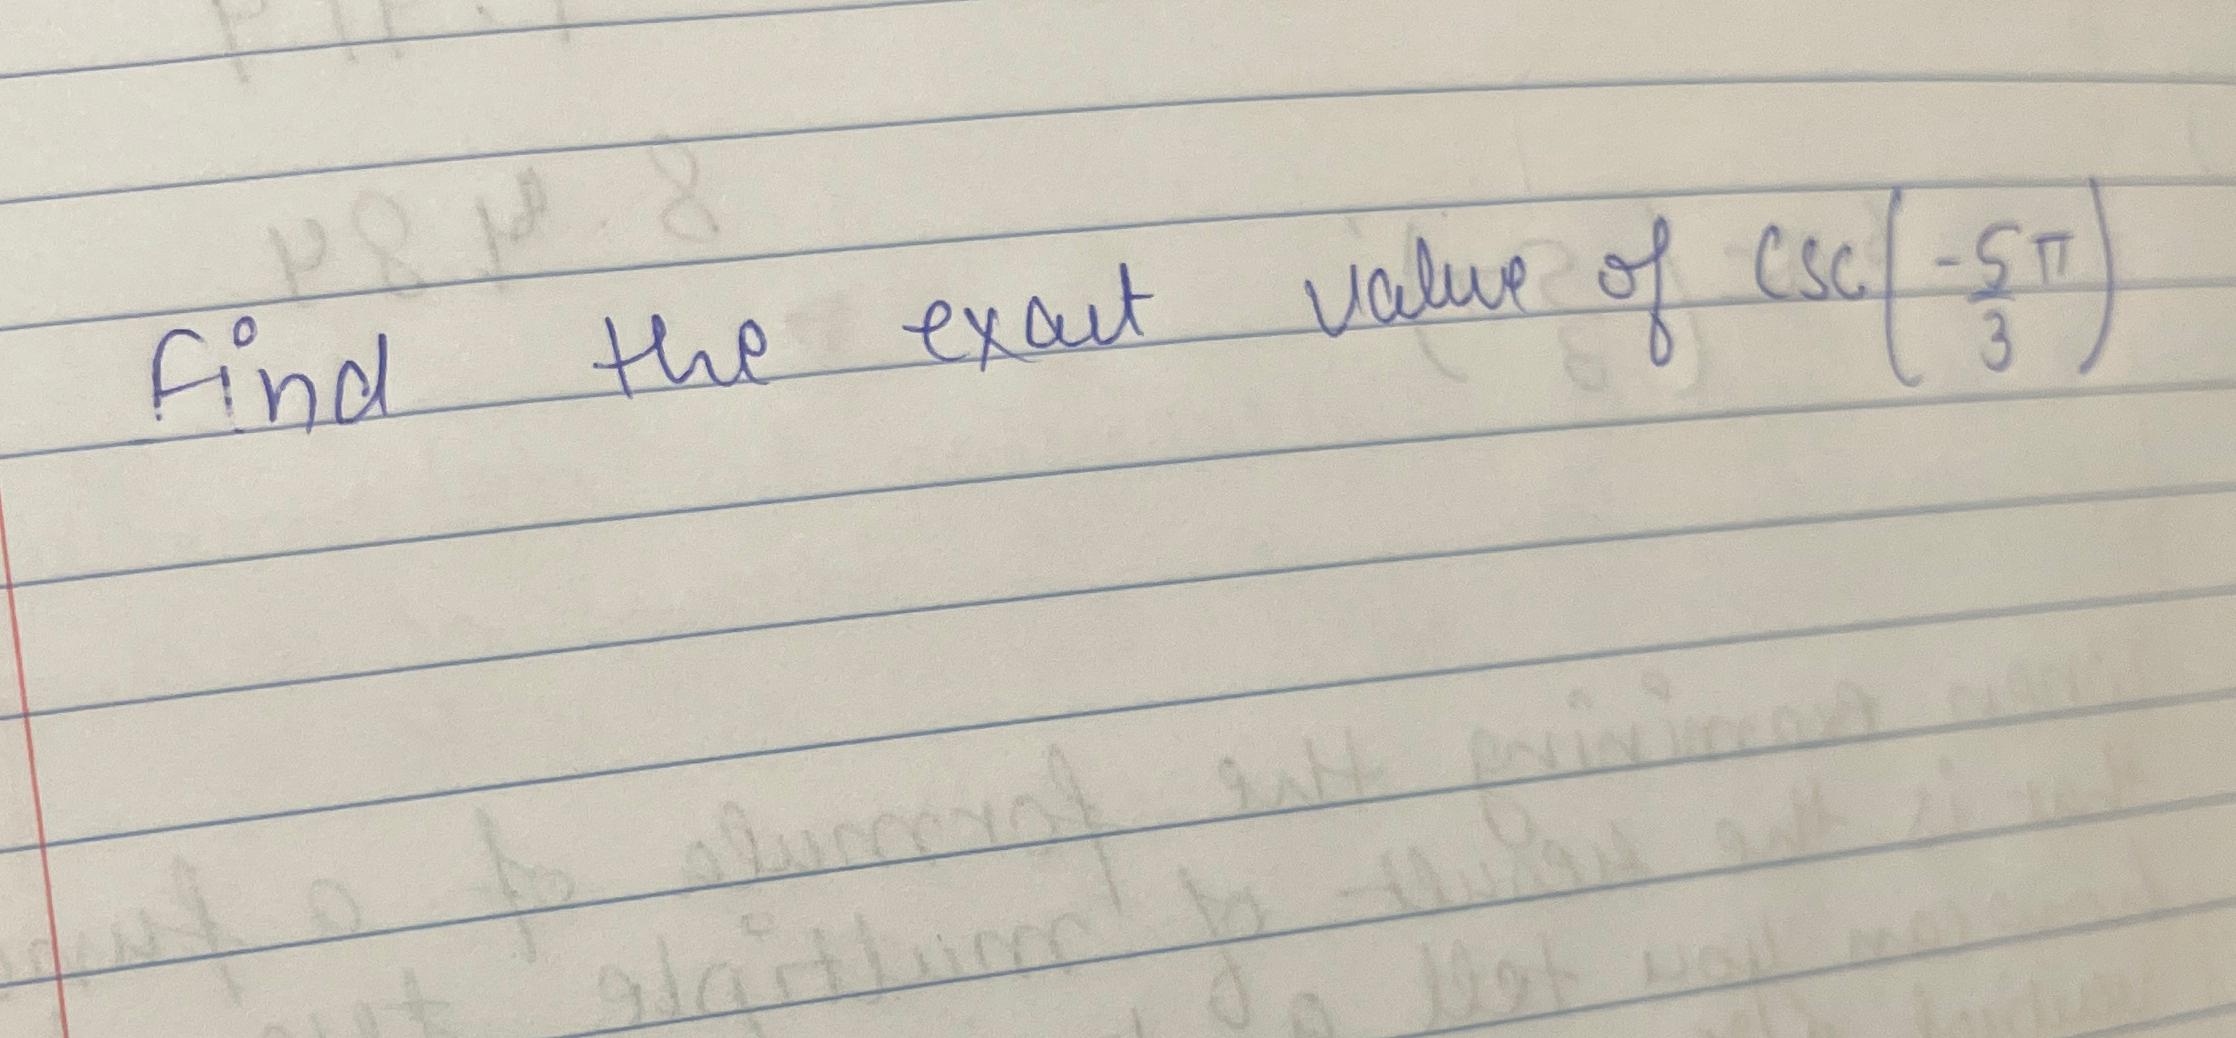 find the exact value of csc(-5π/3)